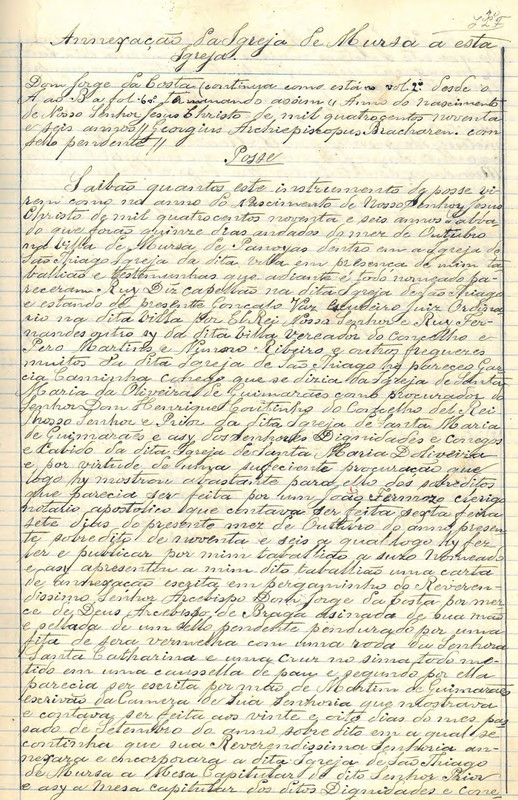 Annexação da Igreja de Mursa a esta
Igreja.
Dom Jorge da Costa (continua como está no vol. 2º desde o
A ao B a fol. 60 terminando assim // Anno do nascimento
de Nosso Senhor Jesus Christo de mil quatrocentos noventa
e seis annos // Georgius Archiepiscopus Bracharen. com
sello pendente //
Posse
Saibão quantos este instrumento de posse vi-
rem como no anno do Nascimento de Nosso Senhor Jesus
Christo de mil quatrocentos noventa e seis annos sabba-
do que forão quinze dias andados do mez de Outubro
na Villa de Mursa de Panoyas dentro em a Igreja de
São Thiago Igreja da dita Villa em presença de mim ta-
ballião e testemunhas que adiante é todo nomeado pa-
receram Ruy Diz capellão na dita Igreja de São Thiago
e estando de presente Goncalo Vaz Juiz Ordina-
rio na dita Villa por El Rei Nosso Senhor e Ruy Fer-
nandes outro sy da dita Villa Vereador do Concelho e
Pero Martins e Nuno Ribeiro e outros freguezes
muitos da dita Igreja de São Thiago hy pareceo Gar-
cia Caminha conego que se diria da Igreja de Santa
Maria da Oliveira de Guimaraes como procurador do
Senhor Dom Henrique Coutinho do Concelho del Rei
nosso Senhor e Prior da dita Igreja de Santa Maria
de Guimaraes e asy dos Senhores Dignidades e Conegos
e Cabido da dita Igreja de Santa Maria D Oliveira
e por virtude de unha suficiente procuração que
logo hy mostrou abastante para ello dos sobreditos
que parecia ser feita por um João Fermozo clerigo
notario apostolico que contava ser feita sexta feira
sete dias do presente mez de Outubro do anno presen-
te sobredito de noventa e seis a qual logo hy fez
ler e publicar por mim taballião a suzo nomeado
e asy apresentou a mim dito taballião uma carta
de annexação escrita em pergaminho do Reveren-
dissimo Senhor Arcebispo Dom Jorge da Costa por mer-
ce de Deus Arcebispo de Braga asinada de sua mão
e sellada de um sello pendente pendurado por uma
fita de sera vermelha com uma roda da Senhora
Santa Catharina e uma Cruz no sima todo me-
tido em uma caussella de pau e segundo por ella
parecia ser escrita por mão de Martim de Guimaraes
escrivão da Camera de sua Senhoria que mostrava
e contava ser feita aos vinte e oito dias do mes pas-
sado de Setembro do anno sobredito em a qual se
continha que sua Reverendissima Senhoria an-
nexara e encorporara a dita Igreja de São Thiago
de Mursa a Mesa Capitular do dito Senhor Prior
e asy a Mesa capitular dos ditos Dignidades e Cone-